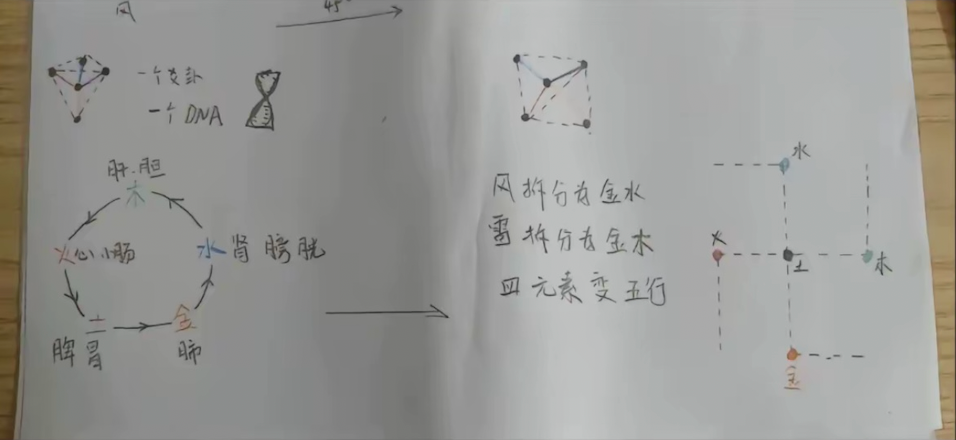 风
45°
一个爻卦
一个DNA
肝.胆
木
火心小肠
水肾膀胱
土
金
脾胃
肺
风拆分为金水
雷拆分为金木
四元素变五行
水
火
土
木
金